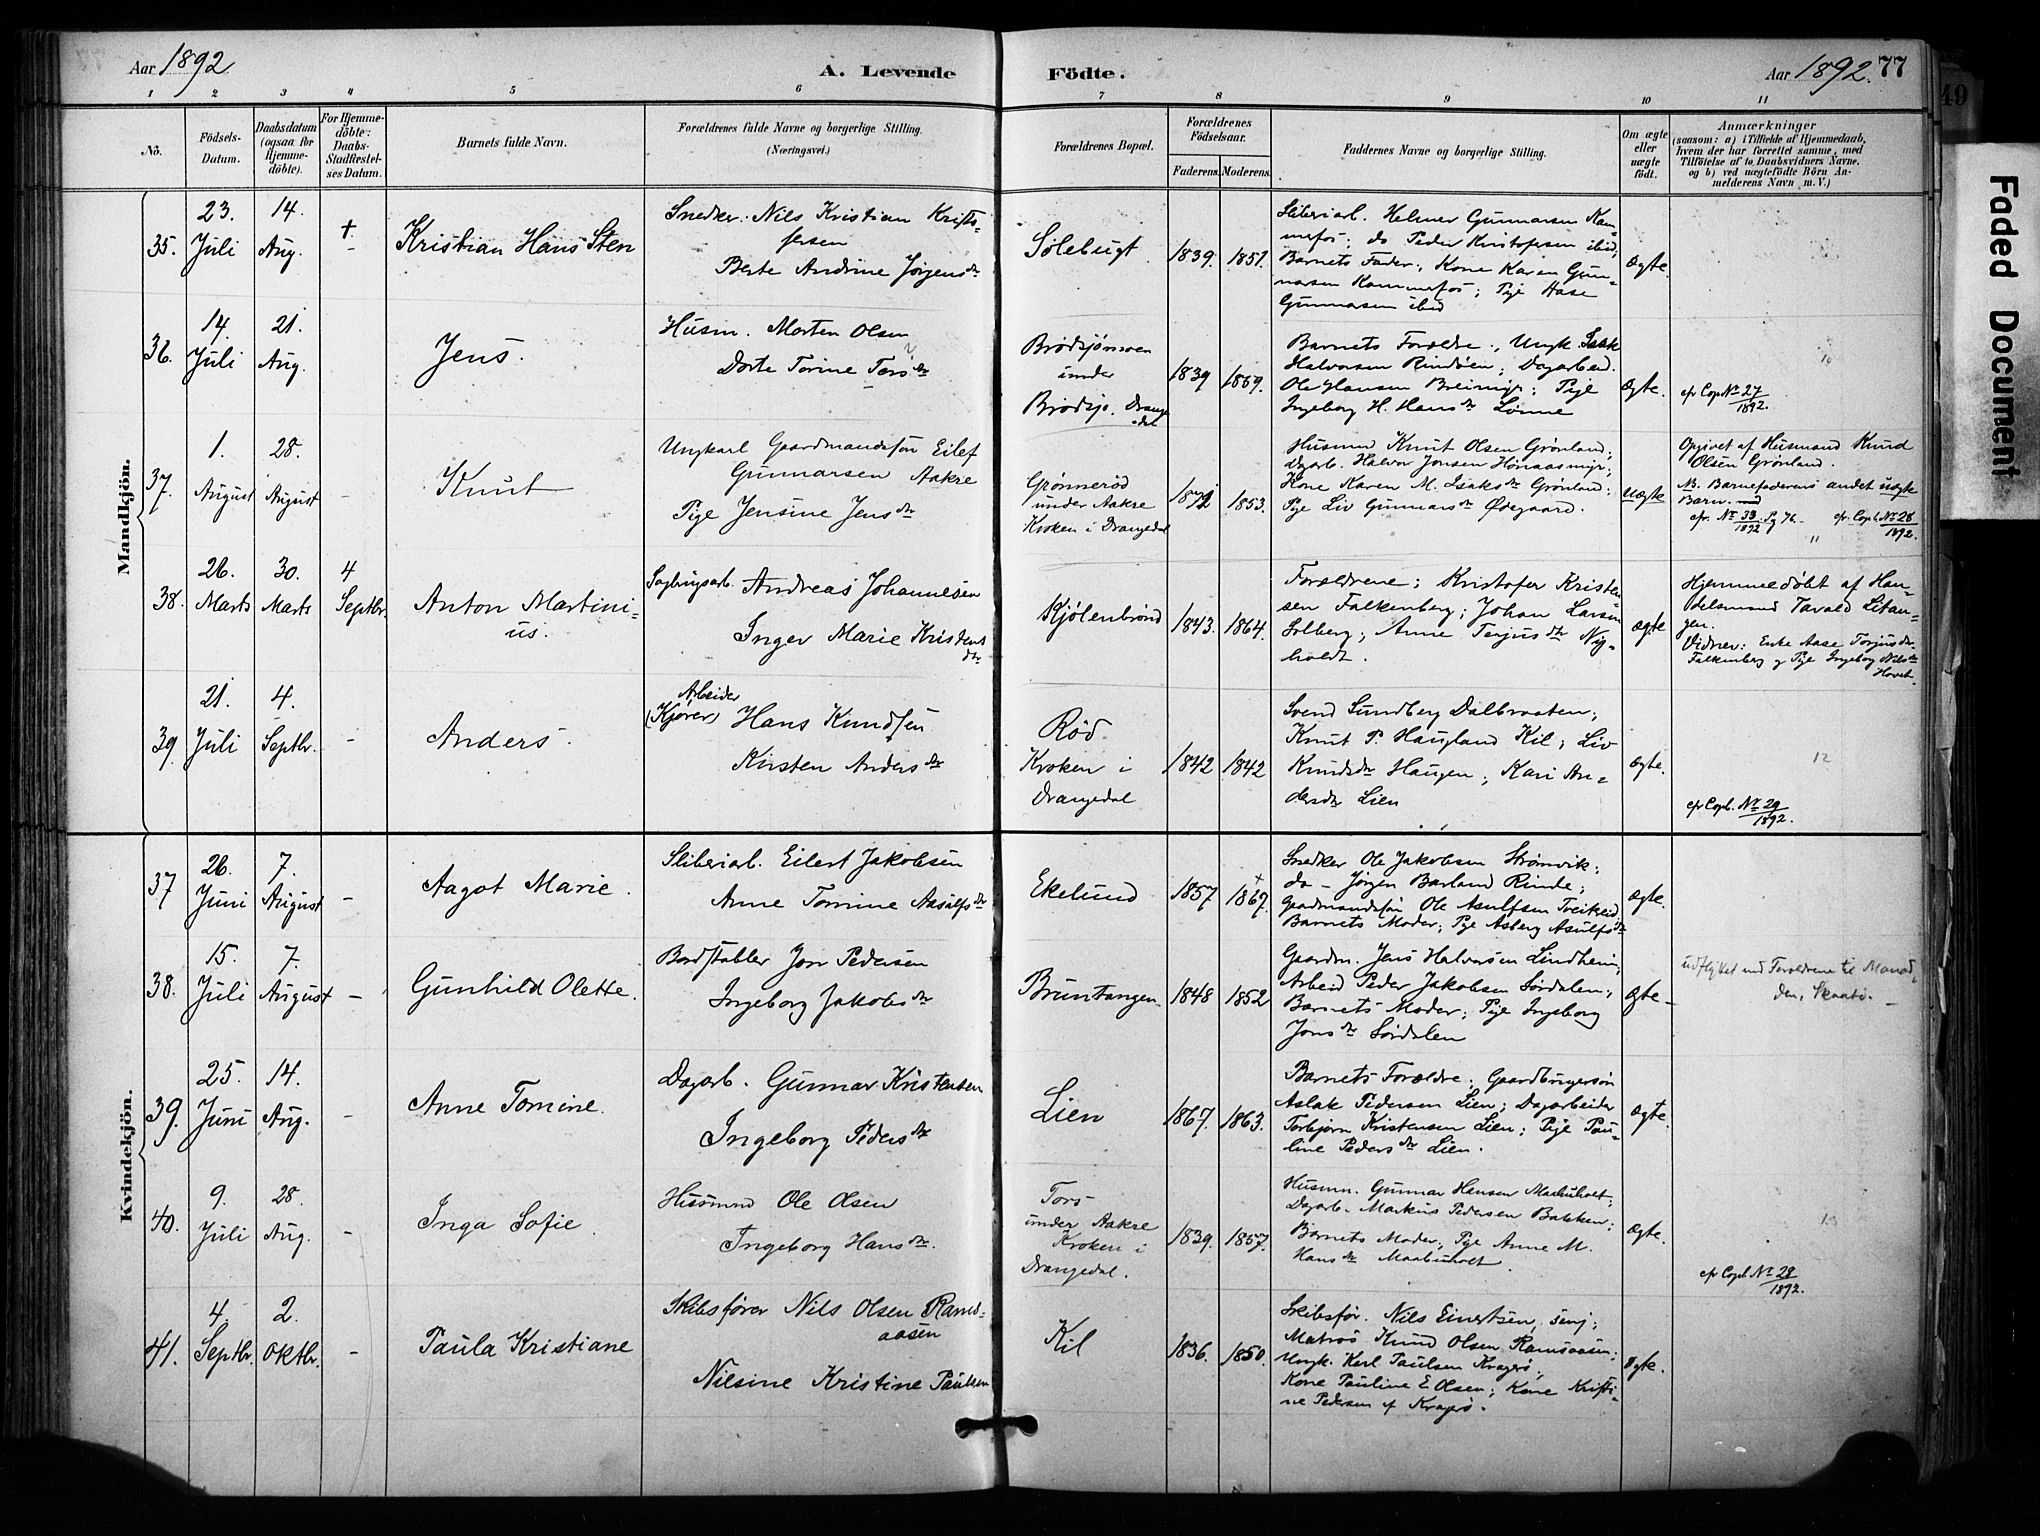 Aar 1892
A. Levende
Födte.
Aar 1892. 77
49
1 2 3 4 5 6 7 8 9 10 11
No.
Födsels-
Datum.
Daabsdatum
(ogsaa for
Hjemme-
döbte).
For Hjemme-
döbte:
Daabs-
Stadfæstel-
ses Datum.
Barnets fulde Navn.
Forældrenes fulde Navne og borgerlige Stilling.
(Næringsvei.)
Forældrenes Bopæl.
Forældrenes
Födselsaar.
Faderens. Moderens.
Faddernes Navne og borgerlige Stilling.
Om ægte
eller
uægte
födt.
Anmærkninger
(saasom: a) i Tilfælde af Hjemmedaab,
hvem der har forrettet samme, med
Tilföielse af to Daabsvidners Navne,
og b) ved uægtefödte Börn An-
melderens Navn m. V.)
Faded Document
Mandkjön.
35.
23.
Juli
14.
Aug.
+
-
Kristian Hans Sten
Snedker: Nils Kristian Kristo-
fersen
Berte Andrine Jörgensdtr
Sølebugt
1839. 1851.
Sliberiarb. Helmer Gunnarsen Kam-
mefos; do Peder Kristofersen ibid;
Barnets Fader; Kone Karen Gun-
narsen Kammefos; Pige Aase
Gunnarsen ibid
Ægte.
36.
14.
Juli
21.
Aug.
Jens.
Husm. Morten Olsen
Dorte Torine Torsdtr
Brødsjømoen
under
Brødsjø, Drange-
dal
1839 1859.
Barnets Forældre; Ungk. Isak
Halvorsen Rindöen; Dagarbeid.
Ole Hansen Breimyr; Pige
Ingeborg H. Hansdtr Lønne
Ægte.
10
cfr Copb. No 27
1892.
37.
1.
August
28.
August
-
Knut
Ungkarl Gaardmandssøn Eilef
Gunnarsen Aakre
Pige Jensine Jensdtr
Grønnerød
under Aakre
Kroken i Drangedal
1872 1853.
Husmd Knut Olsen Grønland;
Dagarb. Halvor Jonsen Hönaasmyr;
Kone Karen M. Isaksdtr Grønland;
Pige Liv Gunnarsdtr Ødegaard.
Uægte
Opgivet af Husmand Knud
Olsen Grønland.
NB. Barnefaderens andet uægte
Barn.
cfr. No 33 Pg 76. - cfr. Copb. No 28
1892 " 1892.
38.
26.
Marts
30.
Marts
4
Septbr.
Anton Martini-
us.
Sagbrugsarb. Andreas Johannesen
Inger Marie Kristens
dtr
Kjølenbrønd
1843. 1864.
Forældrene; Kristofer Kristen-
sen Falkenberg; Johan Larsen
Solberg; Anne Terjusdtr Ny-
holdt.
Ægte
Hjemmedöbt af Han-
delsmand Tarald Litan-
gen.
Vidner: Enke Aase Torjusdtr
Falkenberg og Pige Ingeborg Nilsdtr
Hovet.
39.
21.
Juli
4.
Septbr.
-
Anders.
Arbeider
(Kjører) Hans Knudsen
Kirsten Andersdtr
Rød
Kroken i
Drangedal
1842 1842
Svend Sundberg Dalbraaten;
Knut P. Haugland Kil; Liv
Knudsdtr Haugen; Kari An-
dersdtr Lien
Ægte.
12
cfr Copb. No 29
1892.
Kvindekjön.
37
26.
Juni
7.
August
-
Aagot Marie.
Sliberiarb. Eilert Jakobsen
Anne Tomine Aasulfsdtr
Ekelund
1857 1867.
+
Snedker Ole Jakobsen Strømvik;
do - Jörgen Barland Rinde;
Gaardmandssøn Ole Asulfsen Tveitereid,
Barnets Moder; Pige Asberg Asulfsdtr
Ægte.
38.
15.
Juli
7.
August
-
Gunhild Olette.
Bordstabler Jon Pedersen
Ingeborg Jakobsdtr
Bruntangen
1848 1852
Gaardm. Jens Halvorsen Lindheim;
Arbeid Peder Jakobsen Sördalen;
Barnets Moder; Pige Ingeborg
Jonsdtr Sördalen
Ægte -
udflyttet med Forældrene til
den, Skaatö. -
39.
25.
Juni
14.
Aug.
-
Anne Tomine.
Dagarb. Gunnar Kristensen
Ingeborg Pedersdtr
Lien
1867. 1863.
Barnets Forældre; Gaardbrugersön
Aslak Pedersen Lien; Dagarbeider
Torbjörn Kristensen Lien; Pige Pau-
line Pedersdtr Lien.
Ægte.
40.
9.
Juli
28.
Aug.
-
Inga Sofie.
Husmnd Ole Olsen
Ingeborg Hansdtr.
Tors-
under Aakre
Kroken i
Drangedal.
1839. 1857.
Husmn. Gunnar Hansen Maabuholt;
Dagarb. Markus Pedersen Bakken;
Barnets Moder; Pige Anne M.
Hansdtr Maabuholt
Ægte.
cfr Copb. No 28
1892.
41.
4.
Septbr.
2.
Oktbr.
-
Paula Kristiane
Skibsfører Nils Olsen Rams-
aasen
Nilsine Kristine Paulsen
Kil
1836. 1850.
Skibsfør. Nils Einertsen, senj;
Matros Knud Olsen Ramsaasen;
Ungk. Karl Paulsen Kragerø;
Kone Pauline E Olsen; Kone Kristi-
ne Pedersen af Kragerø.
Ægte.